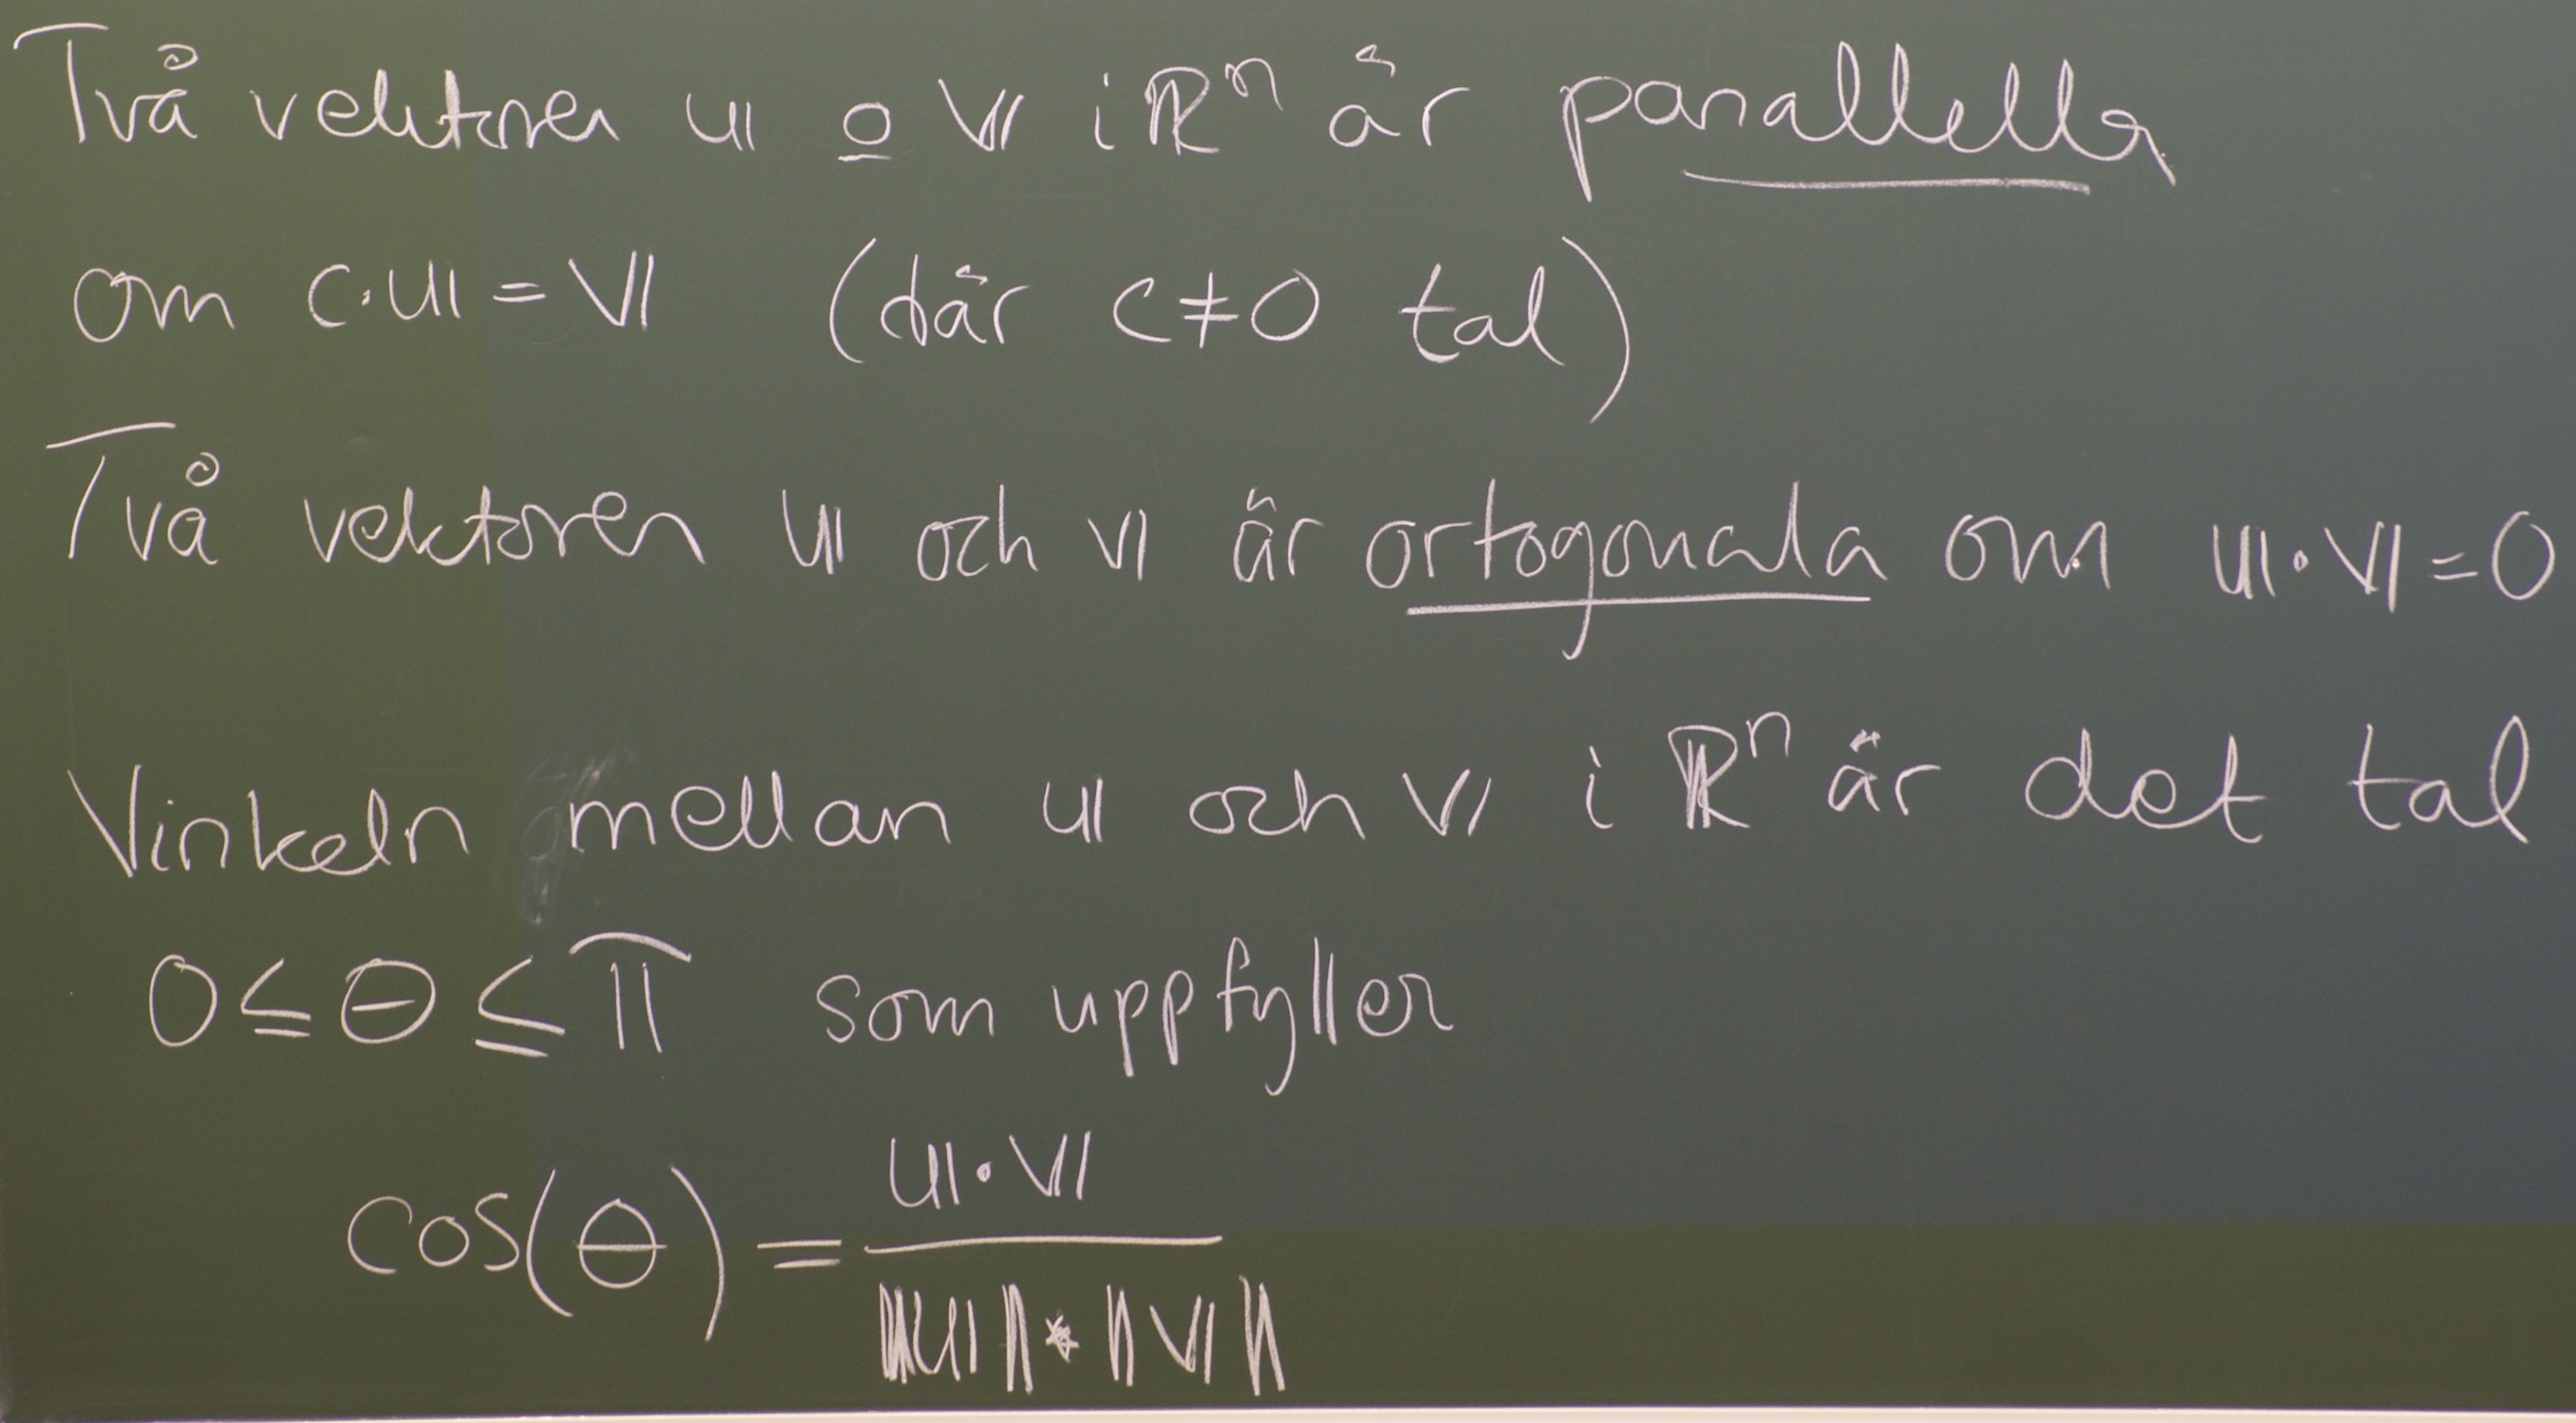 Två vektorer 𝕦 o 𝕧 i ℝⁿ är parallella
om c·𝕦 = 𝕧 (där c ≠ 0 tal)
Två vektorer 𝕦 och 𝕧 är ortogonala om 𝕦·𝕧 = 0
Vinkeln mellan 𝕦 och 𝕧 i ℝⁿ är det tal
0 ≤ θ ≤ π som uppfyller
cos(θ) = 𝕦·𝕧 / ‖𝕦‖*‖𝕧‖